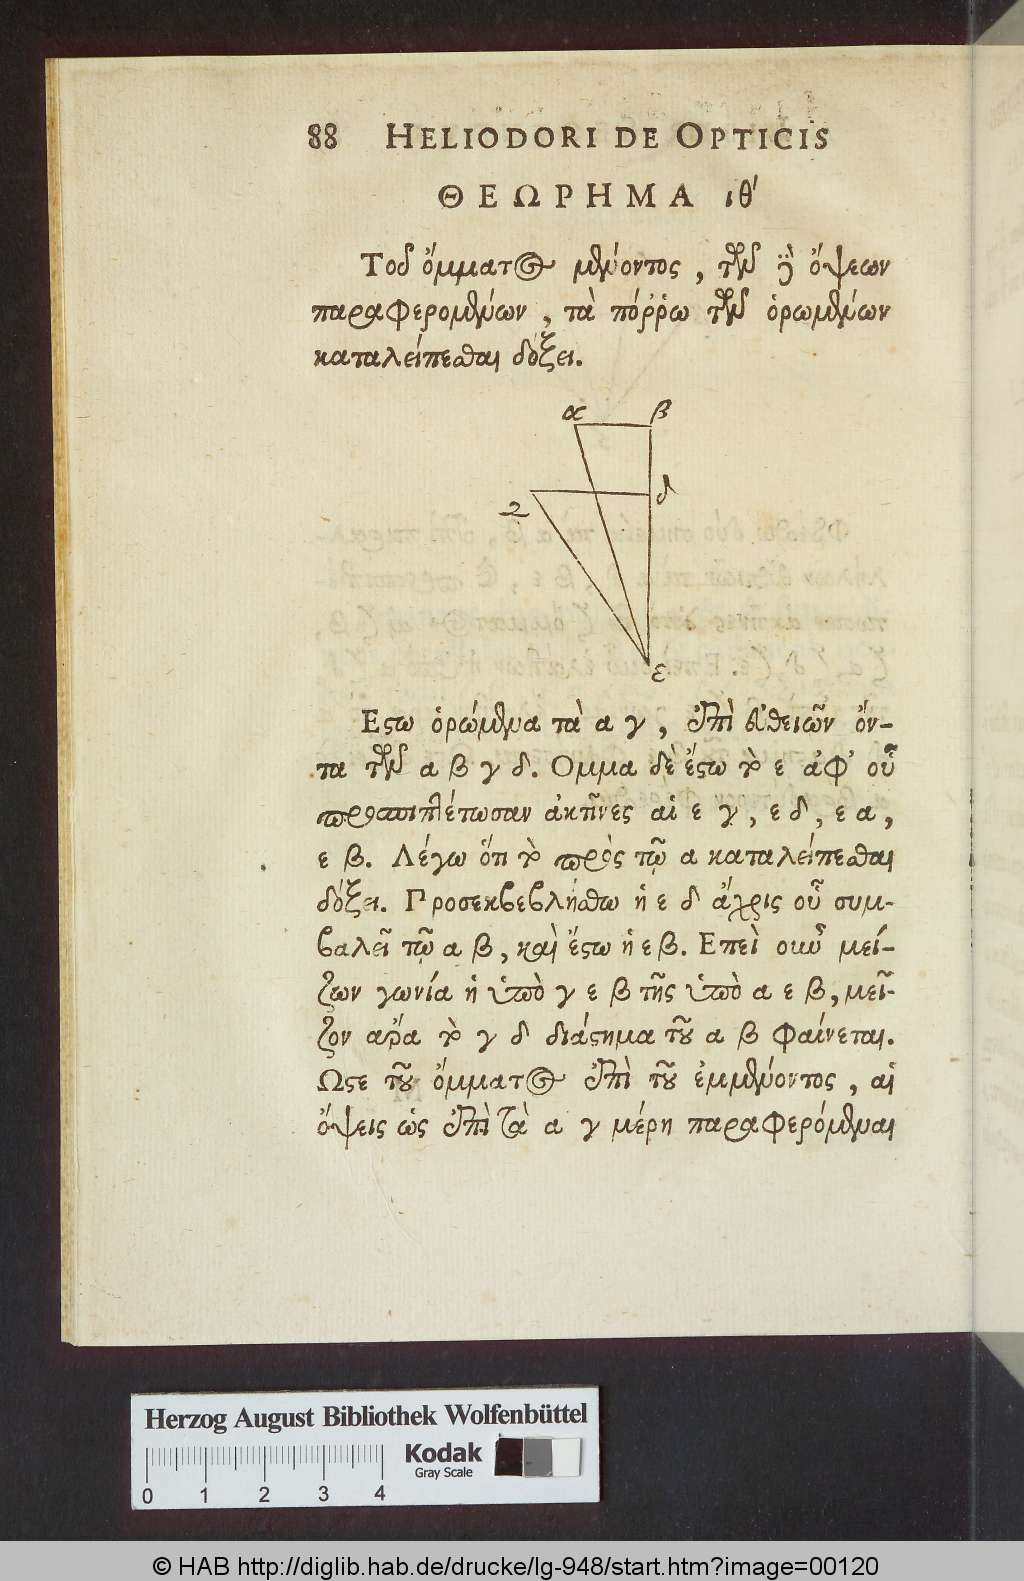 88 HELIODORI DE OPTICIS
ΘΕΩΡΗΜΑ ιθ΄
Τοῦ ὄμματος μένοντος, τῶν δὲ ὄψεων
παραφερομένων, τὰ πόῤῥω τῶν ὁρωμένων
καταλείπεσθαι δόξει.
α β
ζ δ
ε
Εστω ὁρώμενα τὰ α γ, ἐπὶ εὐθειῶν ὄν-
τα τῶν α β γ δ. Ομμα δὲ ἔστω τὸ ε ἀφ' οὗ
προσπιπλέτωσαν ἀκτῖνες αἱ ε γ, ε δ, ε α,
ε β. Λέγω ὅτι τὸ πρὸς τῷ α καταλείπεσθαι
δόξει. Προσεκβεβλήσθω ἡ ε δ ἄχρις οὗ συμ-
βαλεῖ τῷ α β, καὶ ἔστω ἡ ε β. Επεὶ οὖν μεί-
ζων γωνία ἡ ὑπὸ γ ε β τῆς ὑπὸ α ε β, μεῖ-
ζον αρα τὸ γ δ διάστημα τοῦ α β φαίνεται.
Ωστε τοῦ ὄμματος ἐπὶ τοῦ ἐμμένοντος, αἱ
ὄψεις ὡς ἐπὶ τὰ α γ μέρη παραφερόμεναι
Herzog August Bibliothek Wolfenbüttel
Kodak
Gray Scale
0 1 2 3 4
© HAB http://diglib.hab.de/drucke/lg-948/start.htm?image=00120